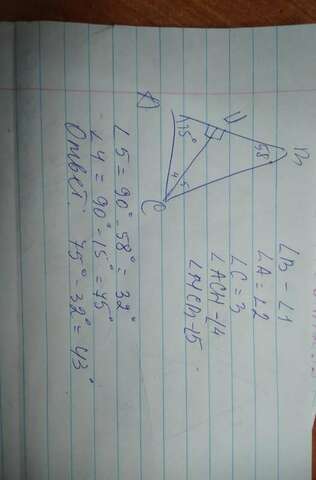 B
58°
H
15°
4 5
A
C
∠B - ∠1
∠A = ∠2
∠C = 3
∠ACH - ∠4
∠5 = 90° - 58° = 32°
∠4 = 90° - 15° = 75°
Ответ: 75° - 32° = 43°